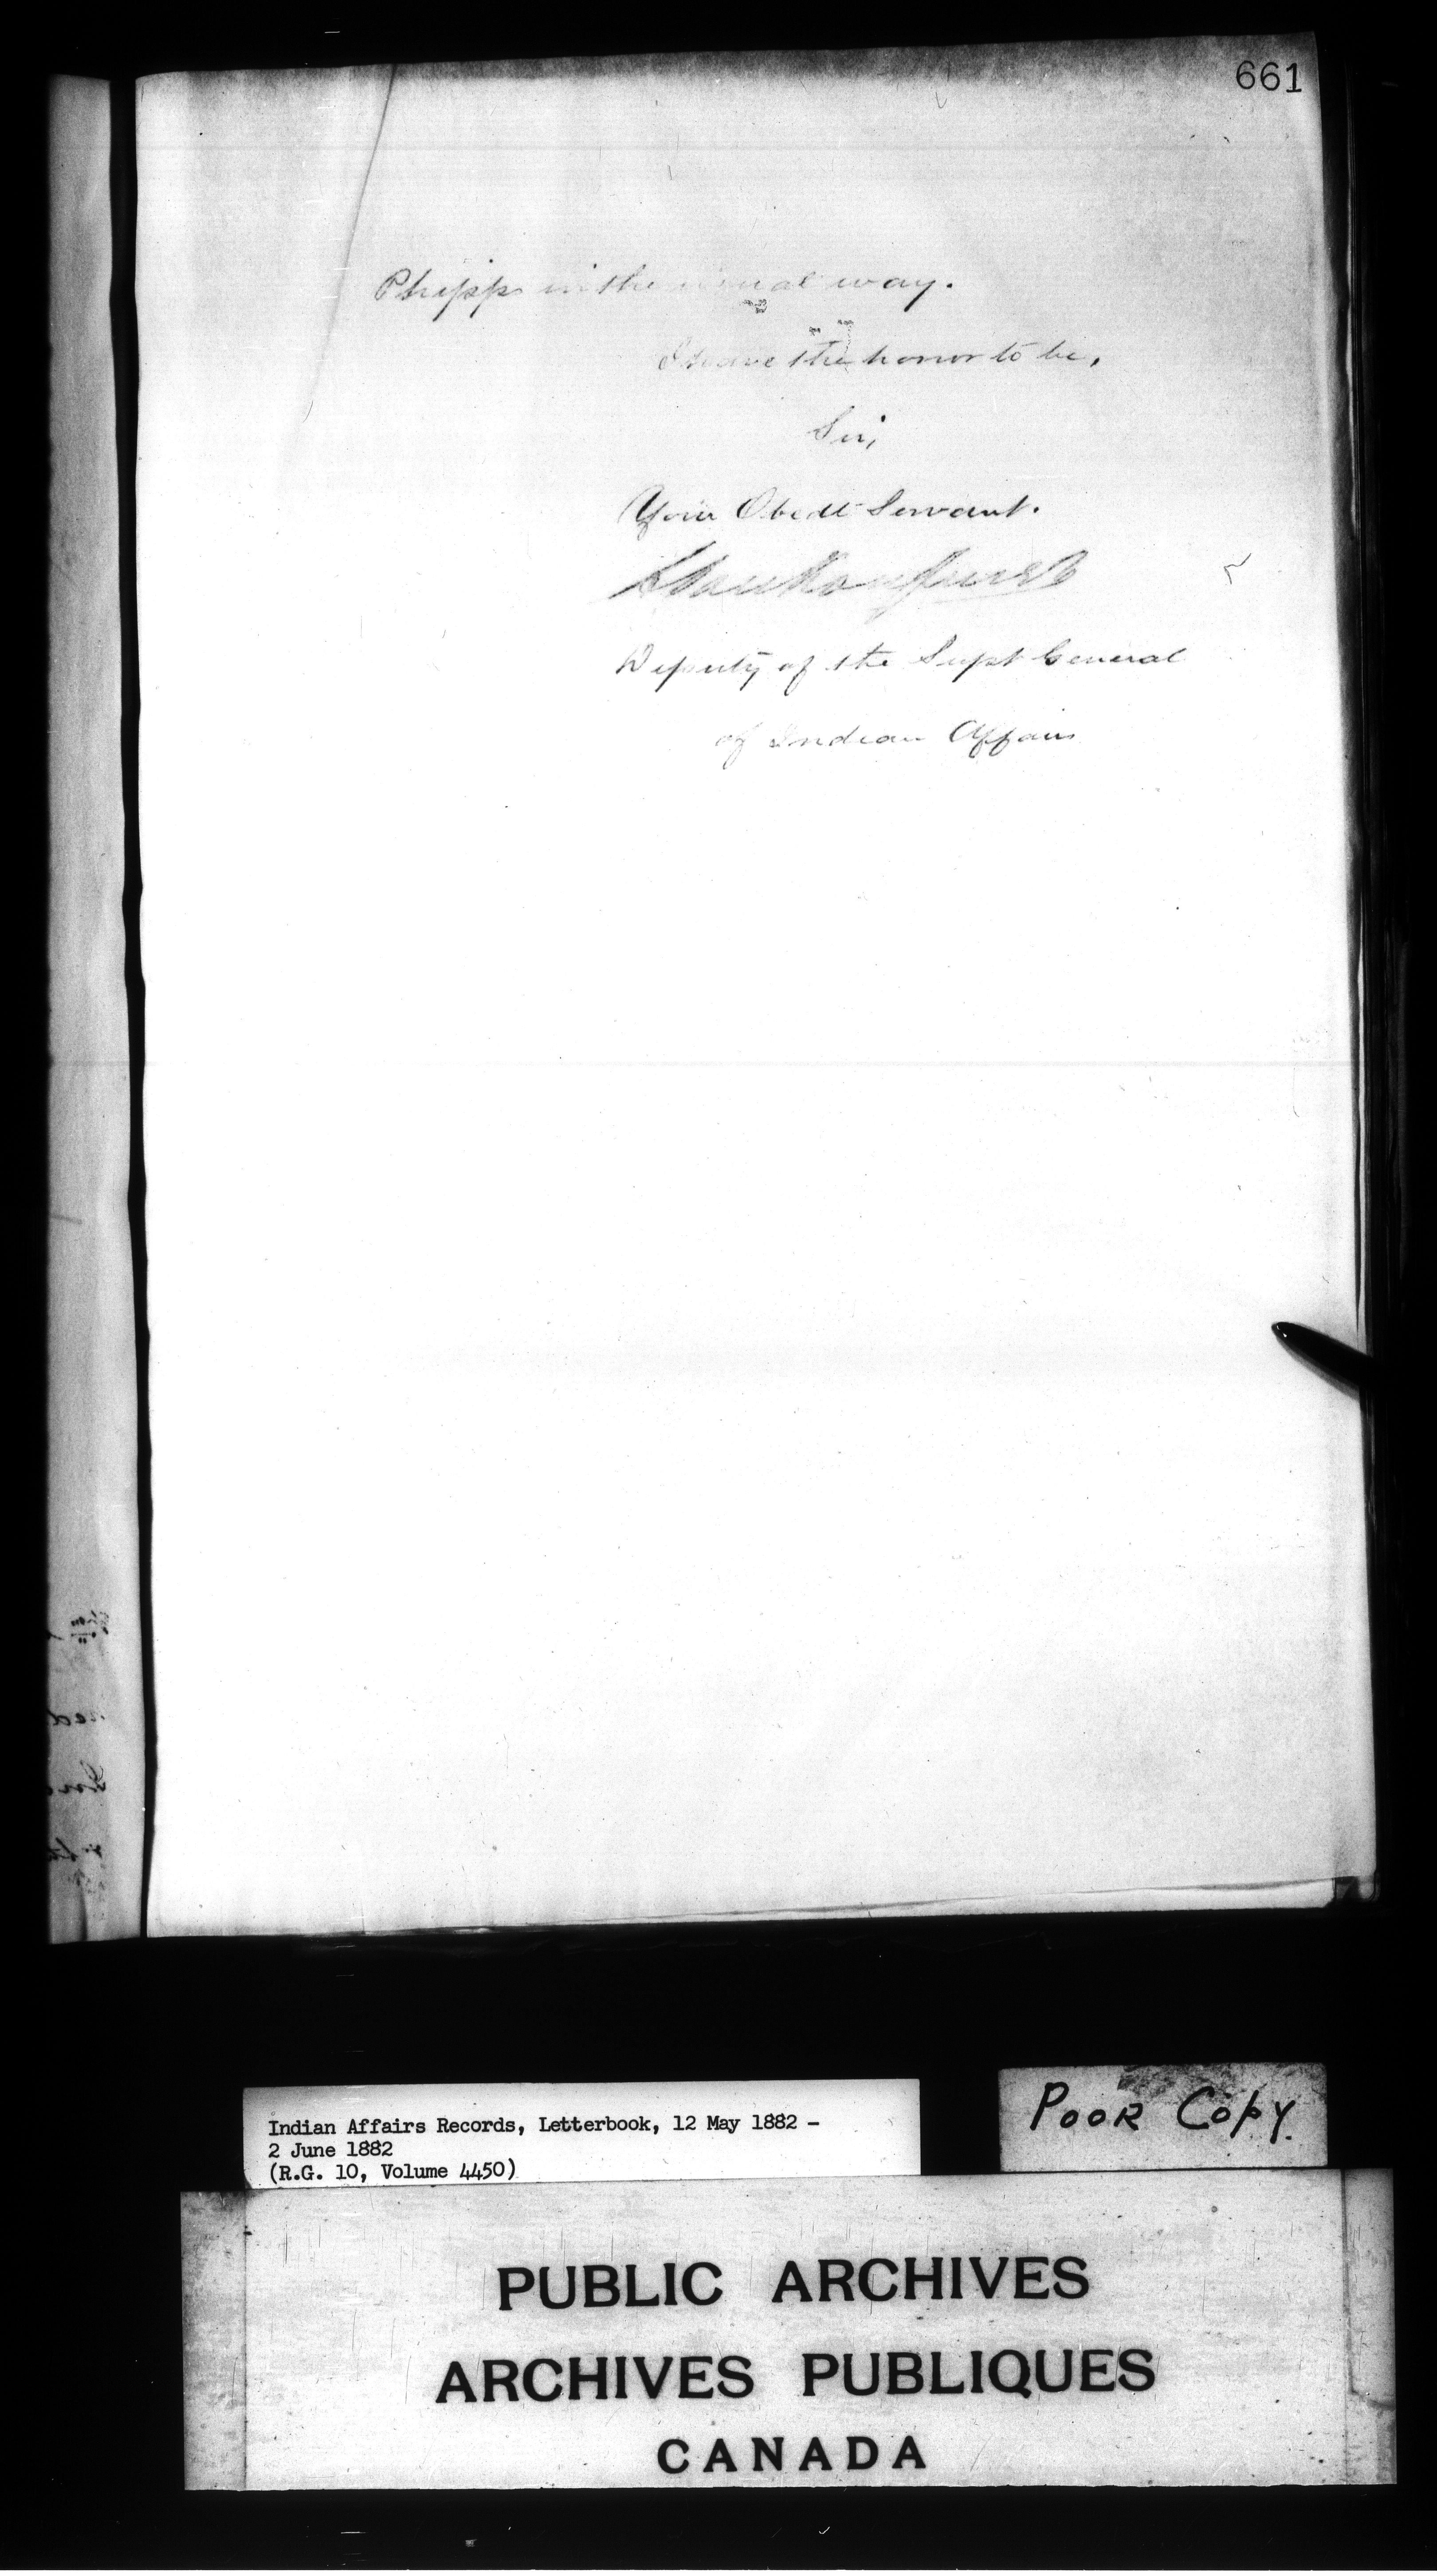 661
Phipps in the usual way.
I have the honor to be,
Sir,
Your Obedt Servant.
L VanKoughnet
Deputy of the Supt General
of Indian Affairs
Indian Affairs Records, Letterbook, 12 May 1882 –
2 June 1882
(R.G. 10, Volume 4450)
POOR COPY.
PUBLIC ARCHIVES
ARCHIVES PUBLIQUES
CANADA